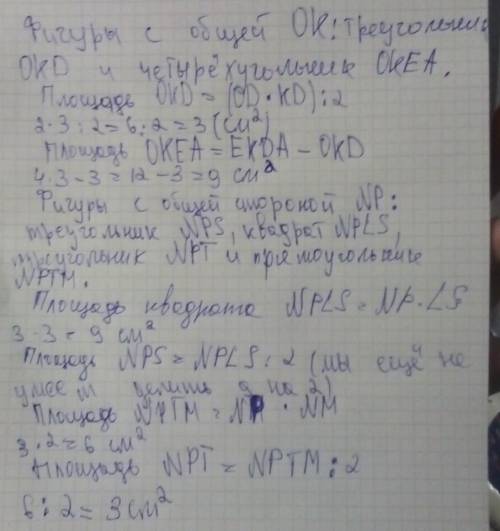 Фигуры с общей ОК: треугольник
OKD и четырёхугольник OKEA.
Площадь OKD = (OD • KD) : 2
2 • 3 : 2 = 6 : 2 = 3 (см²)
Площадь OKEA = EKDA - OKD
4 • 3 - 3 = 12 - 3 = 9 см²
Фигуры с общей стороной NP:
треугольник NPS, квадрат NPLS,
треугольник NPT и прямоугольник
NPTM.
Площадь квадрата NPLS = NP • LS
3 • 3 = 9 см²
Площадь NPS = NPLS : 2 (мы ещё не
умеем делить 9 на 2)
Площадь NPTM = NP • NM
3 • 2 = 6 см²
Площадь NPT = NPTM : 2
6 : 2 = 3 см²